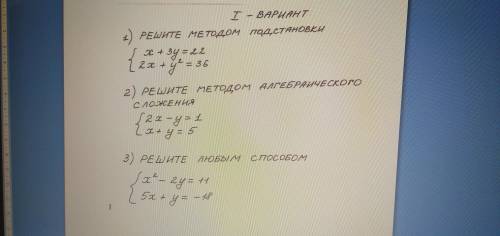 I - ВАРИАНТ
1) РЕШИТЕ МЕТОДОМ ПОДСТАНОВКИ
x + 3y = 22
2x + y² = 36
2) РЕШИТЕ МЕТОДОМ АЛГЕБРАИЧЕСКОГО
СЛОЖЕНИЯ
2x - y = 1
x + y = 5
3) РЕШИТЕ ЛЮБЫМ СПОСОБОМ
x² - 2y = 11
5x + y = -18